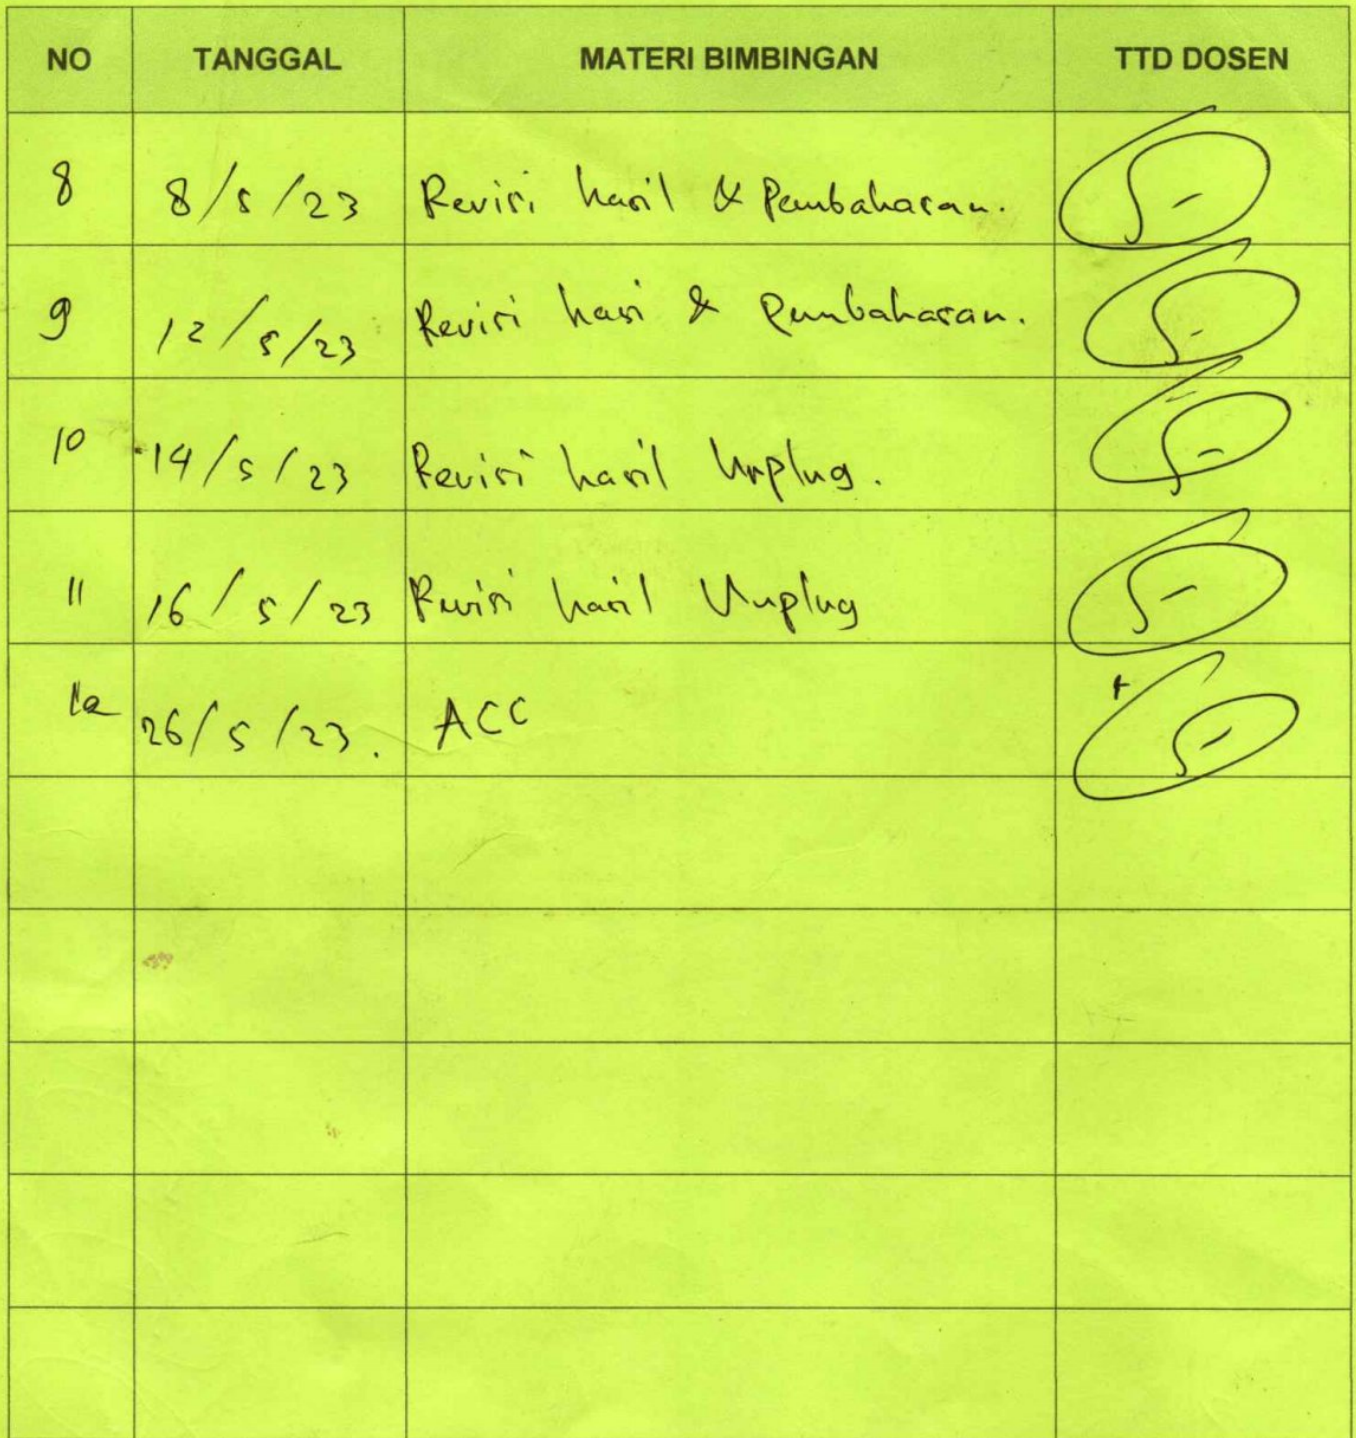 NO TANGGAL MATERI BIMBINGAN TTD DOSEN
8 8/5/23 Revisi hasil & Pembahasan.
9 12/5/23 Revisi hasi & Pembahasan.
10 14/5/23 Revisi hasil Unplug.
11 16/5/23 Revisi hasil Unplug
12 26/5/23. ACC